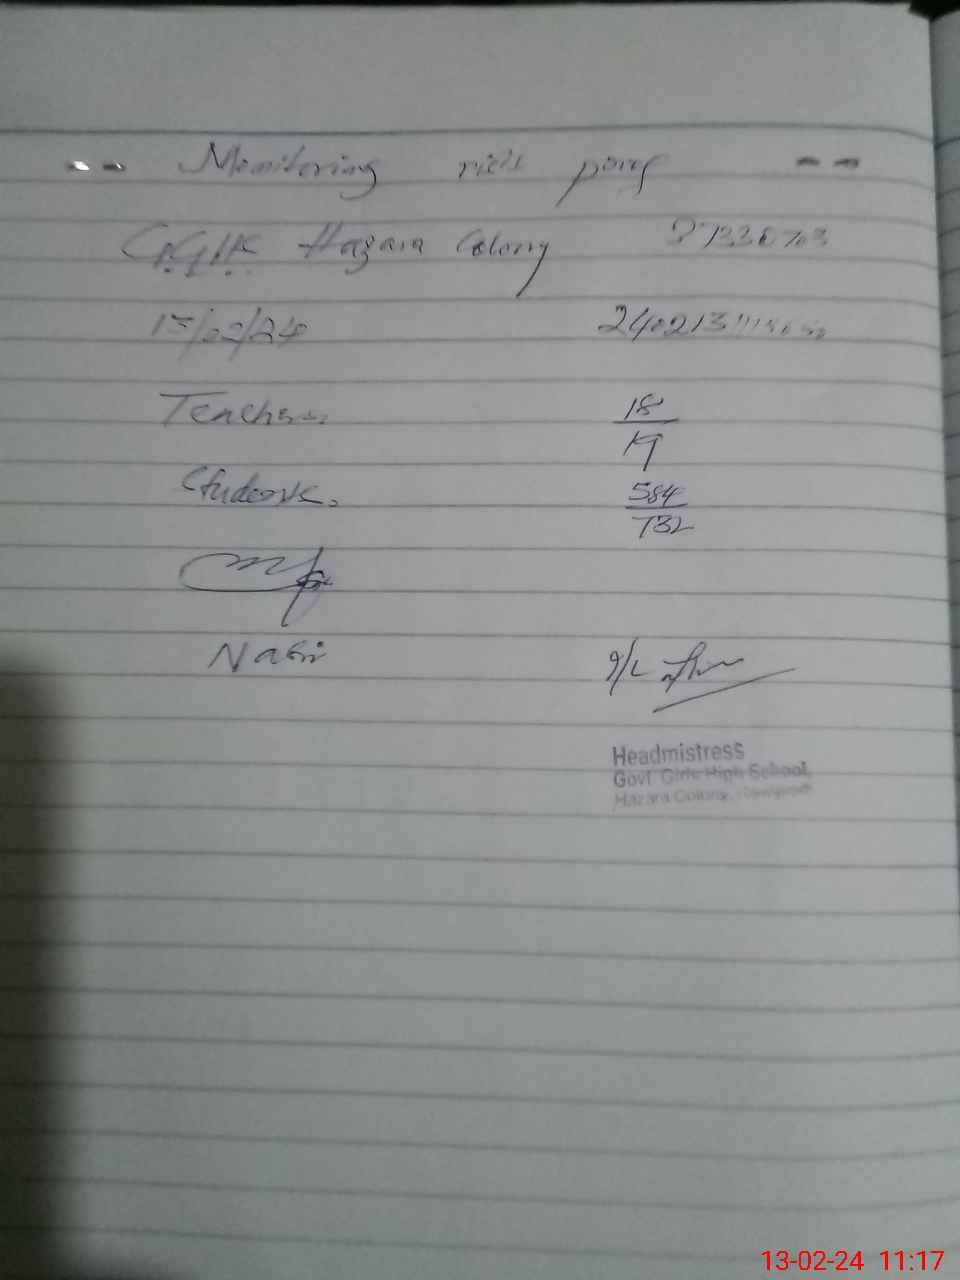 Monitoring visit proof
G.G.H.S Hazara Colony 37330703
13/02/24
Teachers 18/19
Students. 584/732
Nasir
Headmistress
Govt Girls High School,
Hazara Colony,
13-02-24 11:17